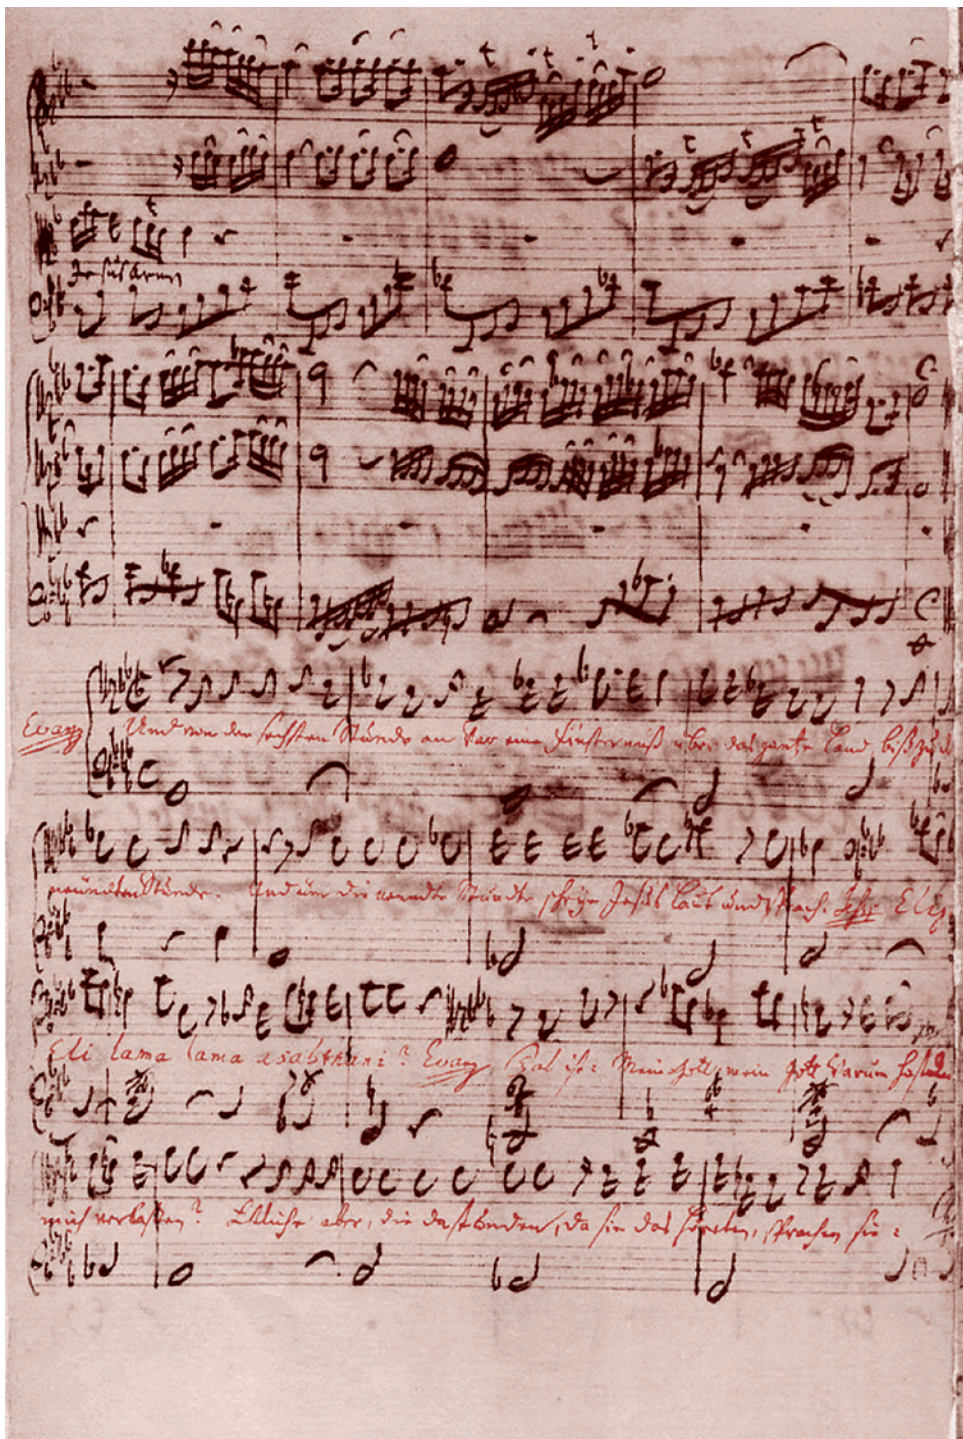 Jesus Armen
Evang Und von der sechsten Stunde an war eine Finsterniß über das gantze Land, biß zu d
neundten Stunde. Und um die neundte Stunde schrye Jesus laut und sprach. Jesus Eli,
Eli lama lama asabthani? Evang Das ist: Mein Gott, mein Gott warum hastdu
mich verlaßen? Etliche aber, die da stunden, da sie das höreten, sprachen sie: